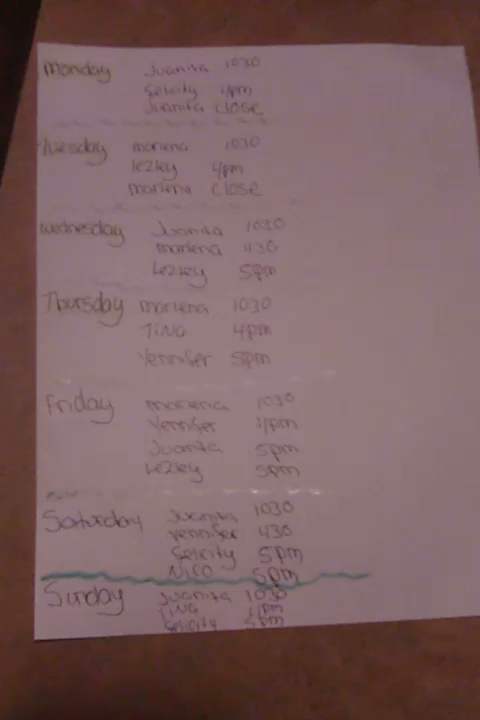 Monday Juanita 1030
Felicity 4pm
Juanita close
Tuesday marlena 1030
lezley 4pm
marlena close
Wednesday Juanita 1030
marlena 430
Lezley 5pm
Thursday marlena 1030
Tina 4pm
Yennifer 5pm
Friday marlena 1030
Yennifer 1pm
Juanita 5pm
Lezley 5pm
Saturday Juanita 1030
Yennifer 430
Felicity 5pm
Nico 5pm
Sunday Juanita 1030
Tina 1pm
Felicity 5pm